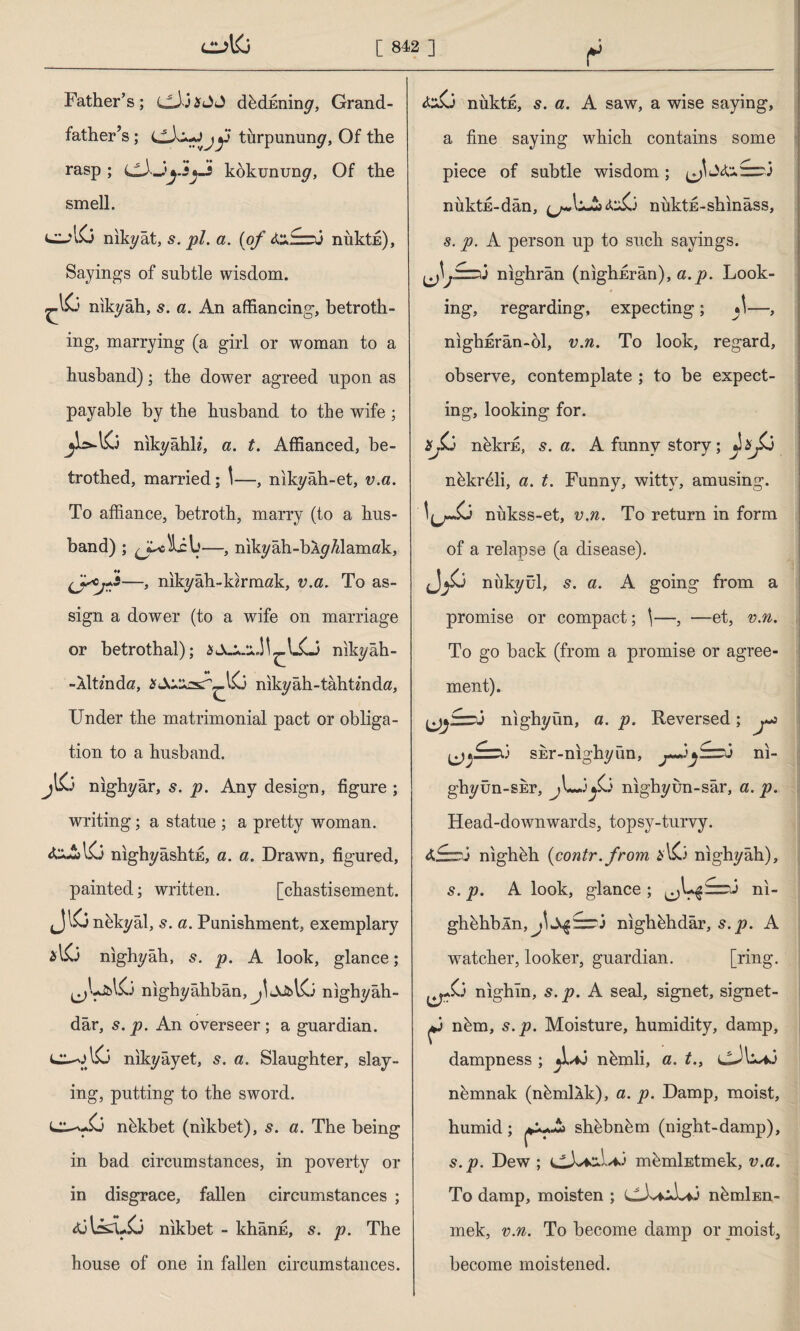 نكات [ 842 ] نم
Father's; ددەنڭ dèdEning, Grand-
father's; تورپونڭ tùrpunung, Of the
rasp; قوقونڭ kòkunung, Of the
smell.
نكات nikyāt, s. pl. a. (of نكته nùktE),
Sayings of subtle wisdom.
نكاح nikyāh, s. a. An affiancing, betroth-
ing, marrying (a girl or woman to a
husband); the dower agreed upon as
payable by the husband to the wife;
نكاحلو nikyāhli, a. t. Affianced, be-
trothed, married; ا—, nikyāh-et, v.a.
To affiance, betroth, marry (to a hus-
band); باغلامق—, nikyāh-bàghlamak,
قيرمق—, nikyāh-kirmak, v.a. To as-
sign a dower (to a wife on marriage
or betrothal); نكاح التنده nikyāh-
-Altinda, نكاح تحتنده nikyāh-tahtinda,
Under the matrimonial pact or obliga-
tion to a husband.
نكار nighyār, s. p. Any design, figure;
writing; a statue; a pretty woman.
نكاشته nighyāshtE, a. a. Drawn, figured,
painted; written. [chastisement.
نكال nèkyāl, s. a. Punishment, exemplary
نكاه nighyāh, s. p. A look, glance;
نكاهبان nighyāhbān, نكاهدار nighyāh-
dār, s. p. An overseer; a guardian.
نكايت nikyāyet, s. a. Slaughter, slay-
ing, putting to the sword.
نكبت nèkbet (nikbet), s. a. The being
in bad circumstances, in poverty or
in disgrace, fallen circumstances;
نكبتخانه nikbet-khānE, s. p. The
house of one in fallen circumstances.
نكته nùktE, s. a. A saw, a wise saying,
a fine saying which contains some
piece of subtle wisdom; نكته‌دان
nùktE-dān, نكته شناس nùktE-shināss,
s. p. A person up to such sayings.
نكران nighrān (nighErān), a.p. Look-
ing, regarding, expecting; او—,
nighErān-ol, v.n. To look, regard,
observe, contemplate; to be expect-
ing, looking for.
نكره nèkrE, s. a. A funny story; نكره‌لو
nèkréli, a. t. Funny, witty, amusing.
نكس ا nùkss-et, v.n. To return in form
of a relapse (a disease).
نكول nukyūl, s. a. A going from a
promise or compact; ا—, —et, v.n.
To go back (from a promise or agree-
ment).
نكون nighyūn, a. p. Reversed; سر
نكون sEr-nighyūn, نكونسر ni-
ghyūn-sEr, نكونسار nighyūn-sār, a. p.
Head-downwards, topsy-turvy.
نكه nighèh (contr. from نكاه nighyāh),
s. p. A look, glance; نكهبان ni-
ghèhbān, نكهدار nighèhdār, s.p. A
watcher, looker, guardian. [ring.
نكين nighīn, s. p. A seal, signet, signet-
نم nèm, s.p. Moisture, humidity, damp,
dampness; نملو nèmli, a. t., نمناك
nèmnak (nèmlàk), a. p. Damp, moist,
humid; شبنم shèbnèm (night-damp),
s. p. Dew; نملتمك mèmlEtmek, v.a.
To damp, moisten; نملنمك nèmlEn-
mek, v.n. To become damp or moist,
become moistened.